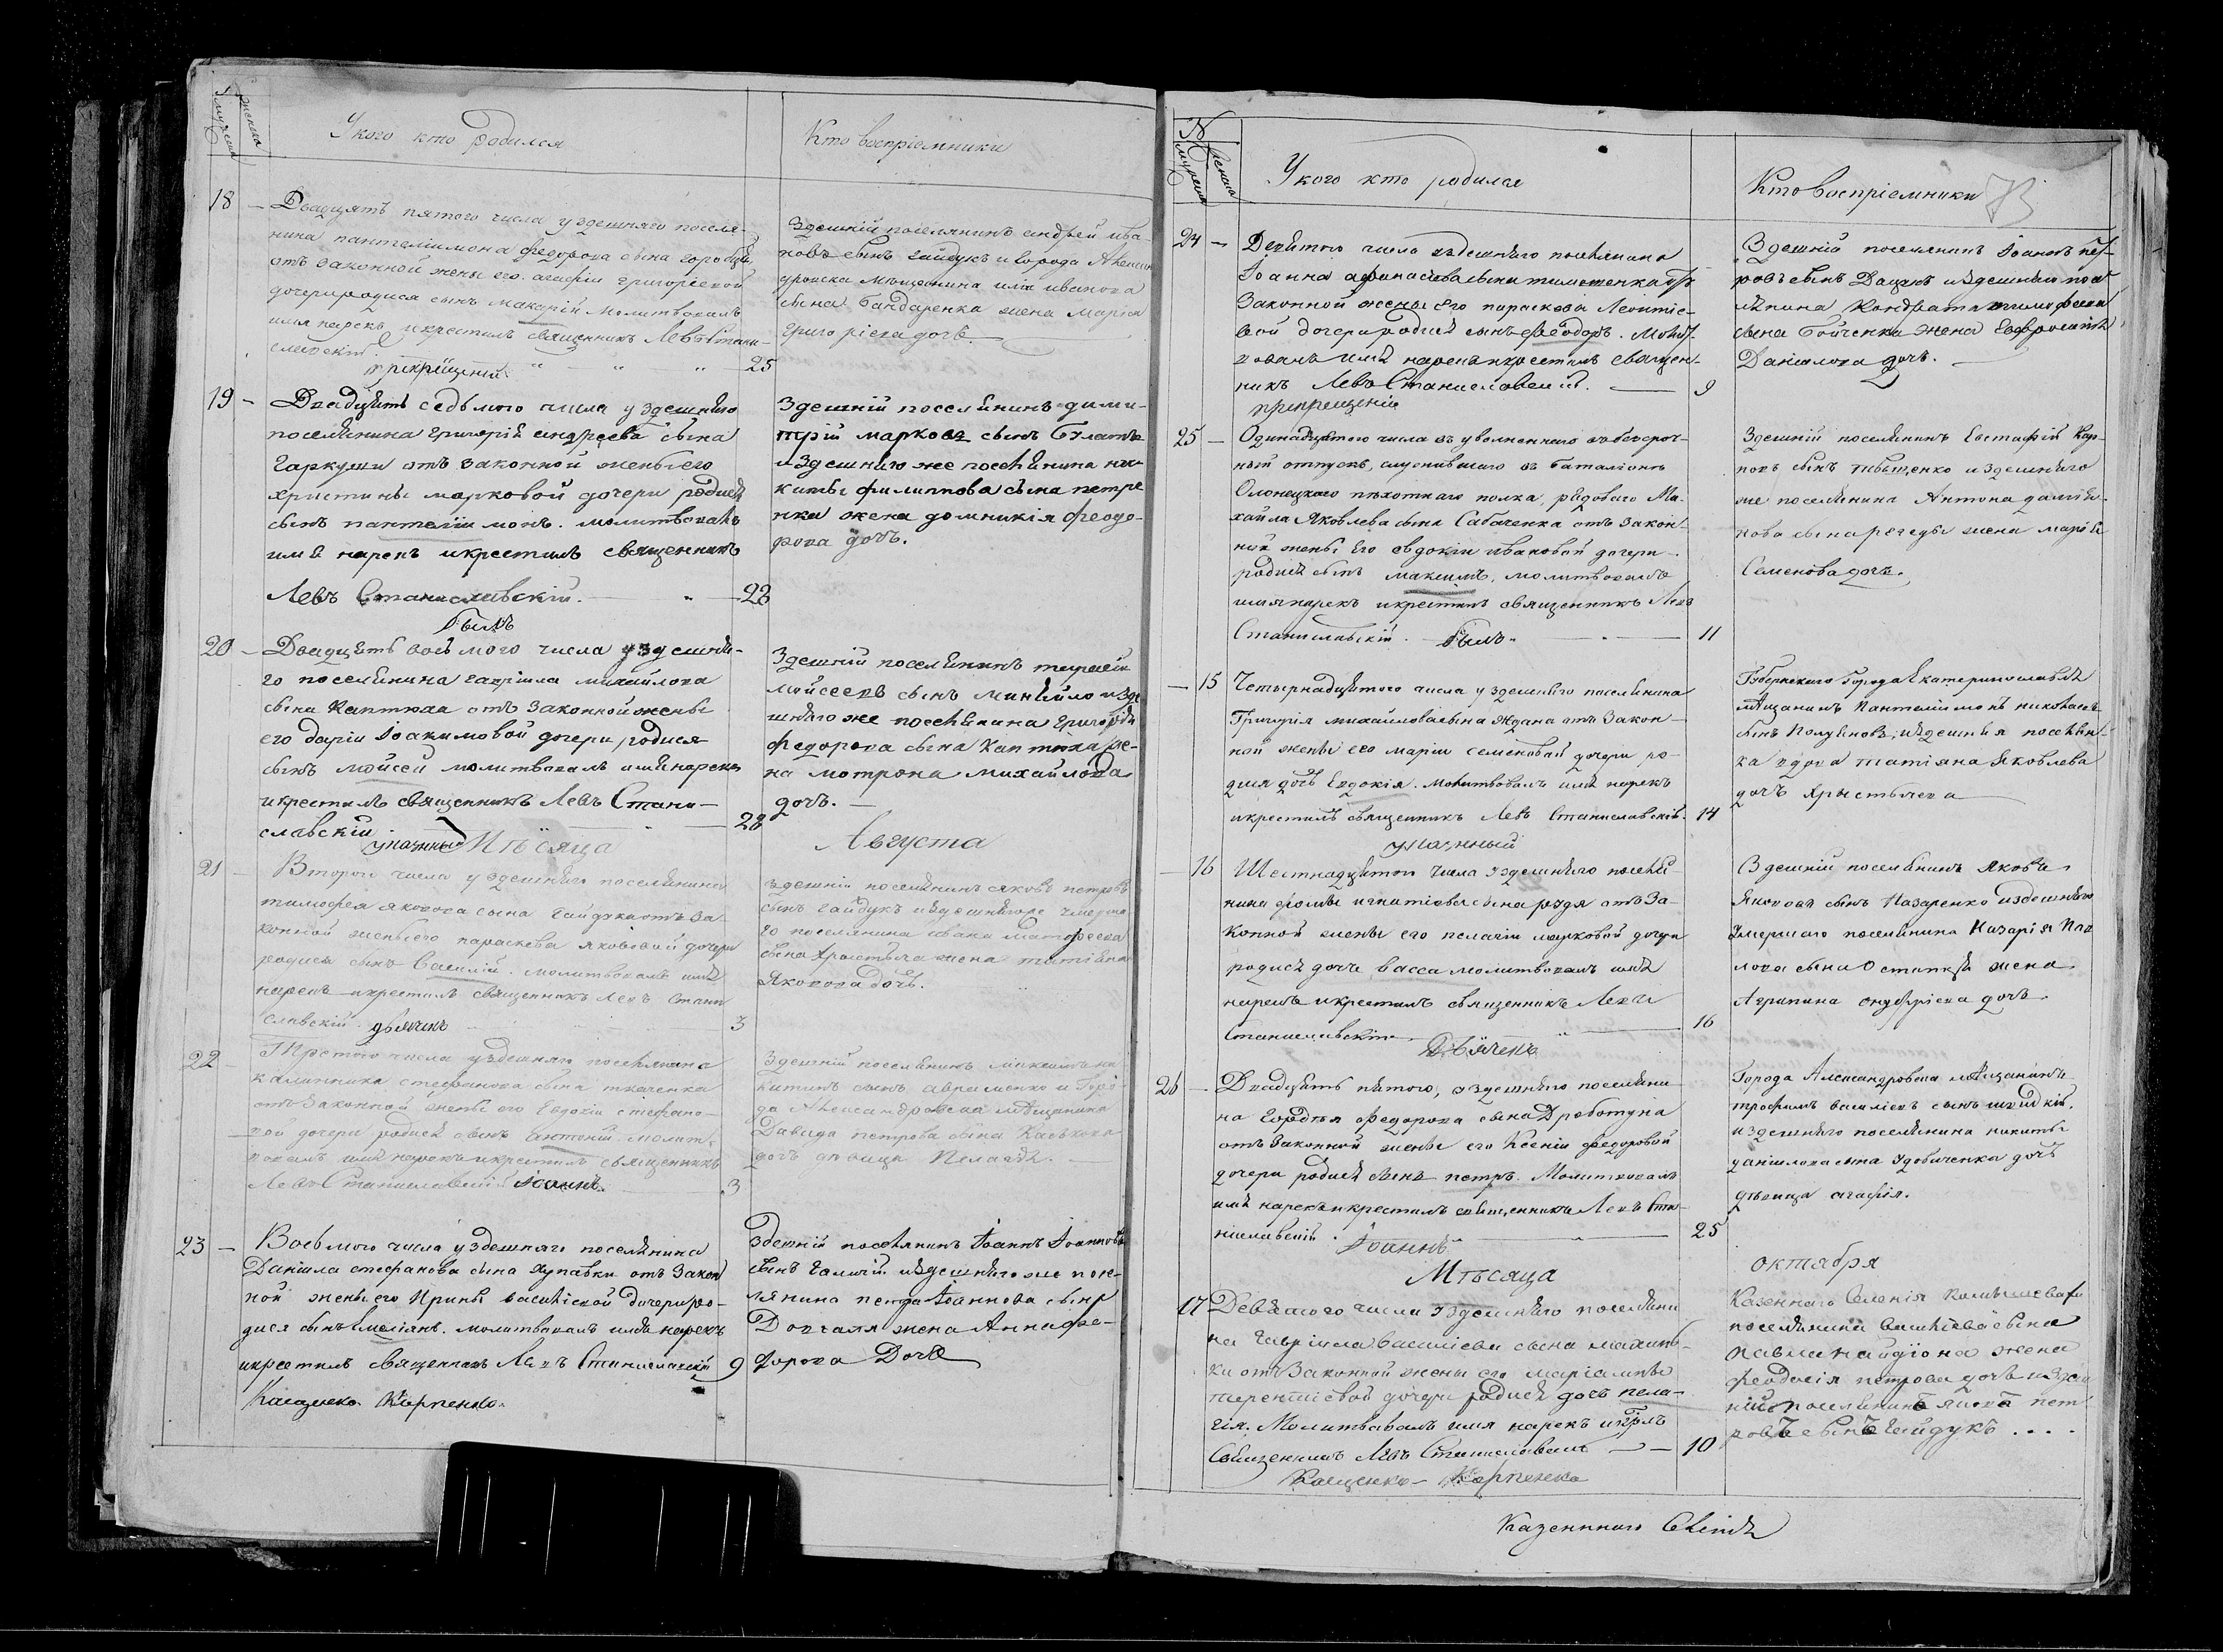 мужеска
женска
У кого кто родился
Кто воспріемники
18 – Двадцять пятого числа у здешняго поселя-
нина пантелиимона федорова сына горобця,
отъ законной жены его агафіи григоріевой
дочери родися сынъ макарій молитвовалъ
имя нарекъ икрестилъ священникъ Левъ Стани-
славскій. 25
Здешній поселянинъ андрей ива-
новъ сынъ гайдукъ и города Алексан
дровска мещанина иліи иванова
сына бандаренка жена марія
григоріева дочь.
при крещеніи
19 – Двадцять седьмого числа у здешняго
поселянина григорія андреева сына
гаркуши отъ законной жены его
христины марковой дочери родися
сынъ пантелиимонъ. молитвовалъ
имя нарекъ икрестилъ священникъ
Левъ Станиславскій. 28
Здешній поселянинъ дими-
трій марковъ сынъ
и здешняго же поселянина ни-
киты филиппова сына петре
нка жена домникія феодо-
рова дочь.
былъ
20 – Двадцять восьмого числа у здешня-
го поселянина гавріила михайлова
сына Каптюха отъ законной жены
его даріи Іоакимовой дочери родися
сынъ мойсей молитвовалъ имя нарекъ
икрестилъ священникъ Левъ Стани-
славскій 28
Здешній поселянинъ тарасій
мойсеевъ сынъ и зде
шняго же поселянина григорія
федорова сына Каптюха же-
на мотрона михайлова
дочь.
указанный
Мѣсяца Августа
21 – Второго числа у здешняго поселянина
тимофея якова сына гайдука отъ за-
конной жены его параскева яковлевой дочери
родися сынъ Василій. молитвовалъ имя
нарекъ икрестилъ священникъ Левъ Стани
славскій 3
дьячекъ
здешній поселянинъ яковъ петровъ
сынъ гайдукъ и здешняго же умерша
го поселянина ивана матфеева
сына жена татіяна
Яковлева дочь.
22 – Третого числа у здешняго поселянина
калинника стефанова сына ткаченка
отъ законной жены его Евдокіи стефано-
вой дочери родися сынъ антоній. молит-
вовалъ имя нарекъ икрестилъ священникъ
Левъ Станиславскій 3
Іоаннъ
Здешній поселянинъ максимъ ни
китинъ сынъ авраменко и горо-
да Александровска мещанина
Давида петрова сына
дочь дѣвица Пелагія.
23 – Восьмого числа у здешняго поселянина
Даніила стефанова сына хупавки отъ закон
ной жены его Ирины василіевой дочери ро-
дися сынъ Емеліянъ. молитвовалъ имя нарекъ
икрестилъ священникъ Левъ Станиславскій 9
Здешній поселянинъ Іоаннъ Іоанновъ
сынъ и здешняго же посе-
лянина петра Іоаннова сына
Довгаля жена Анна фе-
дорова Дочь
Карпенко.
№
мужеска
женска
У кого кто родился
Кто Воспріемники
24 – Девятого числа у здешняго поселянина
Іоанна афанасіева сына тимошенка отъ
Законной жены его параскева Леонтіе-
вой дочери родися сынъ феодоръ. Молит-
вовалъ имя нарекъ икрестилъ священ-
никъ Левъ Станиславскій. 9
Здешній поселянинъ Іоаннъ пет-
ровъ сынъ Дацукъ и здешняго посе
лянина Кондрата тимофеева
сына бойченка жена Евфросинія
Даніилова дочь.
при крещеніи
25 – Одинадцятого числа у уволненнаго въ безсроч-
ный отпускъ, служившаго въ баталіонъ
Олонецкаго пѣхотнаго полка, рядоваго Ми-
хайла Яковлева сына Сабаченка отъ закон-
ной жены его евдокіи ивановой дочери
родися сынъ максимъ, молитвовалъ
имя нарекъ икрестилъ священникъ Левъ
Станиславскій. былъ 11
Здешній поселянинъ Евстафій Кар-
повъ сынъ и здешняго
же поселянина Антона даміа-
нова сына жена марія
Семенова дочь.
– 15 Четырнадцятого числа у здешняго поселянина
Григорія михайлова сына Ждана отъ закон-
ной жены его маріи семеновой дочери ро-
дися дочь Евдокія. Молитвовалъ имя нарекъ
икрестилъ священникъ Левъ Станиславскій. 14
Губернскаго Города Екатеринославля
мещанинъ Пантелиимонъ николаевъ
сынъ и здешняя поселян-
ка вдова татіяна Яковлева
дочь
указанный
– 16 Шестнадцятого числа у здешняго поселя-
нина фомы игнатіева сына рудя отъ за-
конной жены его пелагіи марковой дочери
родися дочь васса молитвовалъ имя
нарекъ икрестилъ священникъ Левъ
Станиславскій 16
Дьячекъ
Здешній поселянинъ Яковъ
Яковлевъ сынъ Назаренко и здешняго
Умершаго поселянина Назарія Пав
лова сына жена
Агрипина онуфріева дочь
26 – Двадцять пятого, у здешняго поселяни-
на Гордѣя Федорова сына Дроботуна
отъ Законной жены его Ксеніи федоровой
дочери родися сынъ петръ. Молитвовалъ
имя нарекъ икрестилъ священникъ Левъ Ста
ниславскій. 25
Іоаннъ
Города Александровска мещанинъ
трофимъ василіевъ сынъ
и здешняго поселянина никиты
даніилова сына Удовиченка дочь
дѣвица агафія.
Мѣсяца октября
17 Девятого числа у здешняго поселяни
на гавріила василіева сына
отъ Законной жены его маріамны
терентіевой дочери родися дочь пела-
гія. Молитвовалъ имя нарекъ икр-лъ
Священникъ Левъ Станиславскій 10
Казеннаго Селенія
поселянина сына
жена
феодосія петрова дочь и здеш
ній поселянинъ яковъ пет
ровъ сынъ гайдукъ ....
Карпенко
Казеннаго